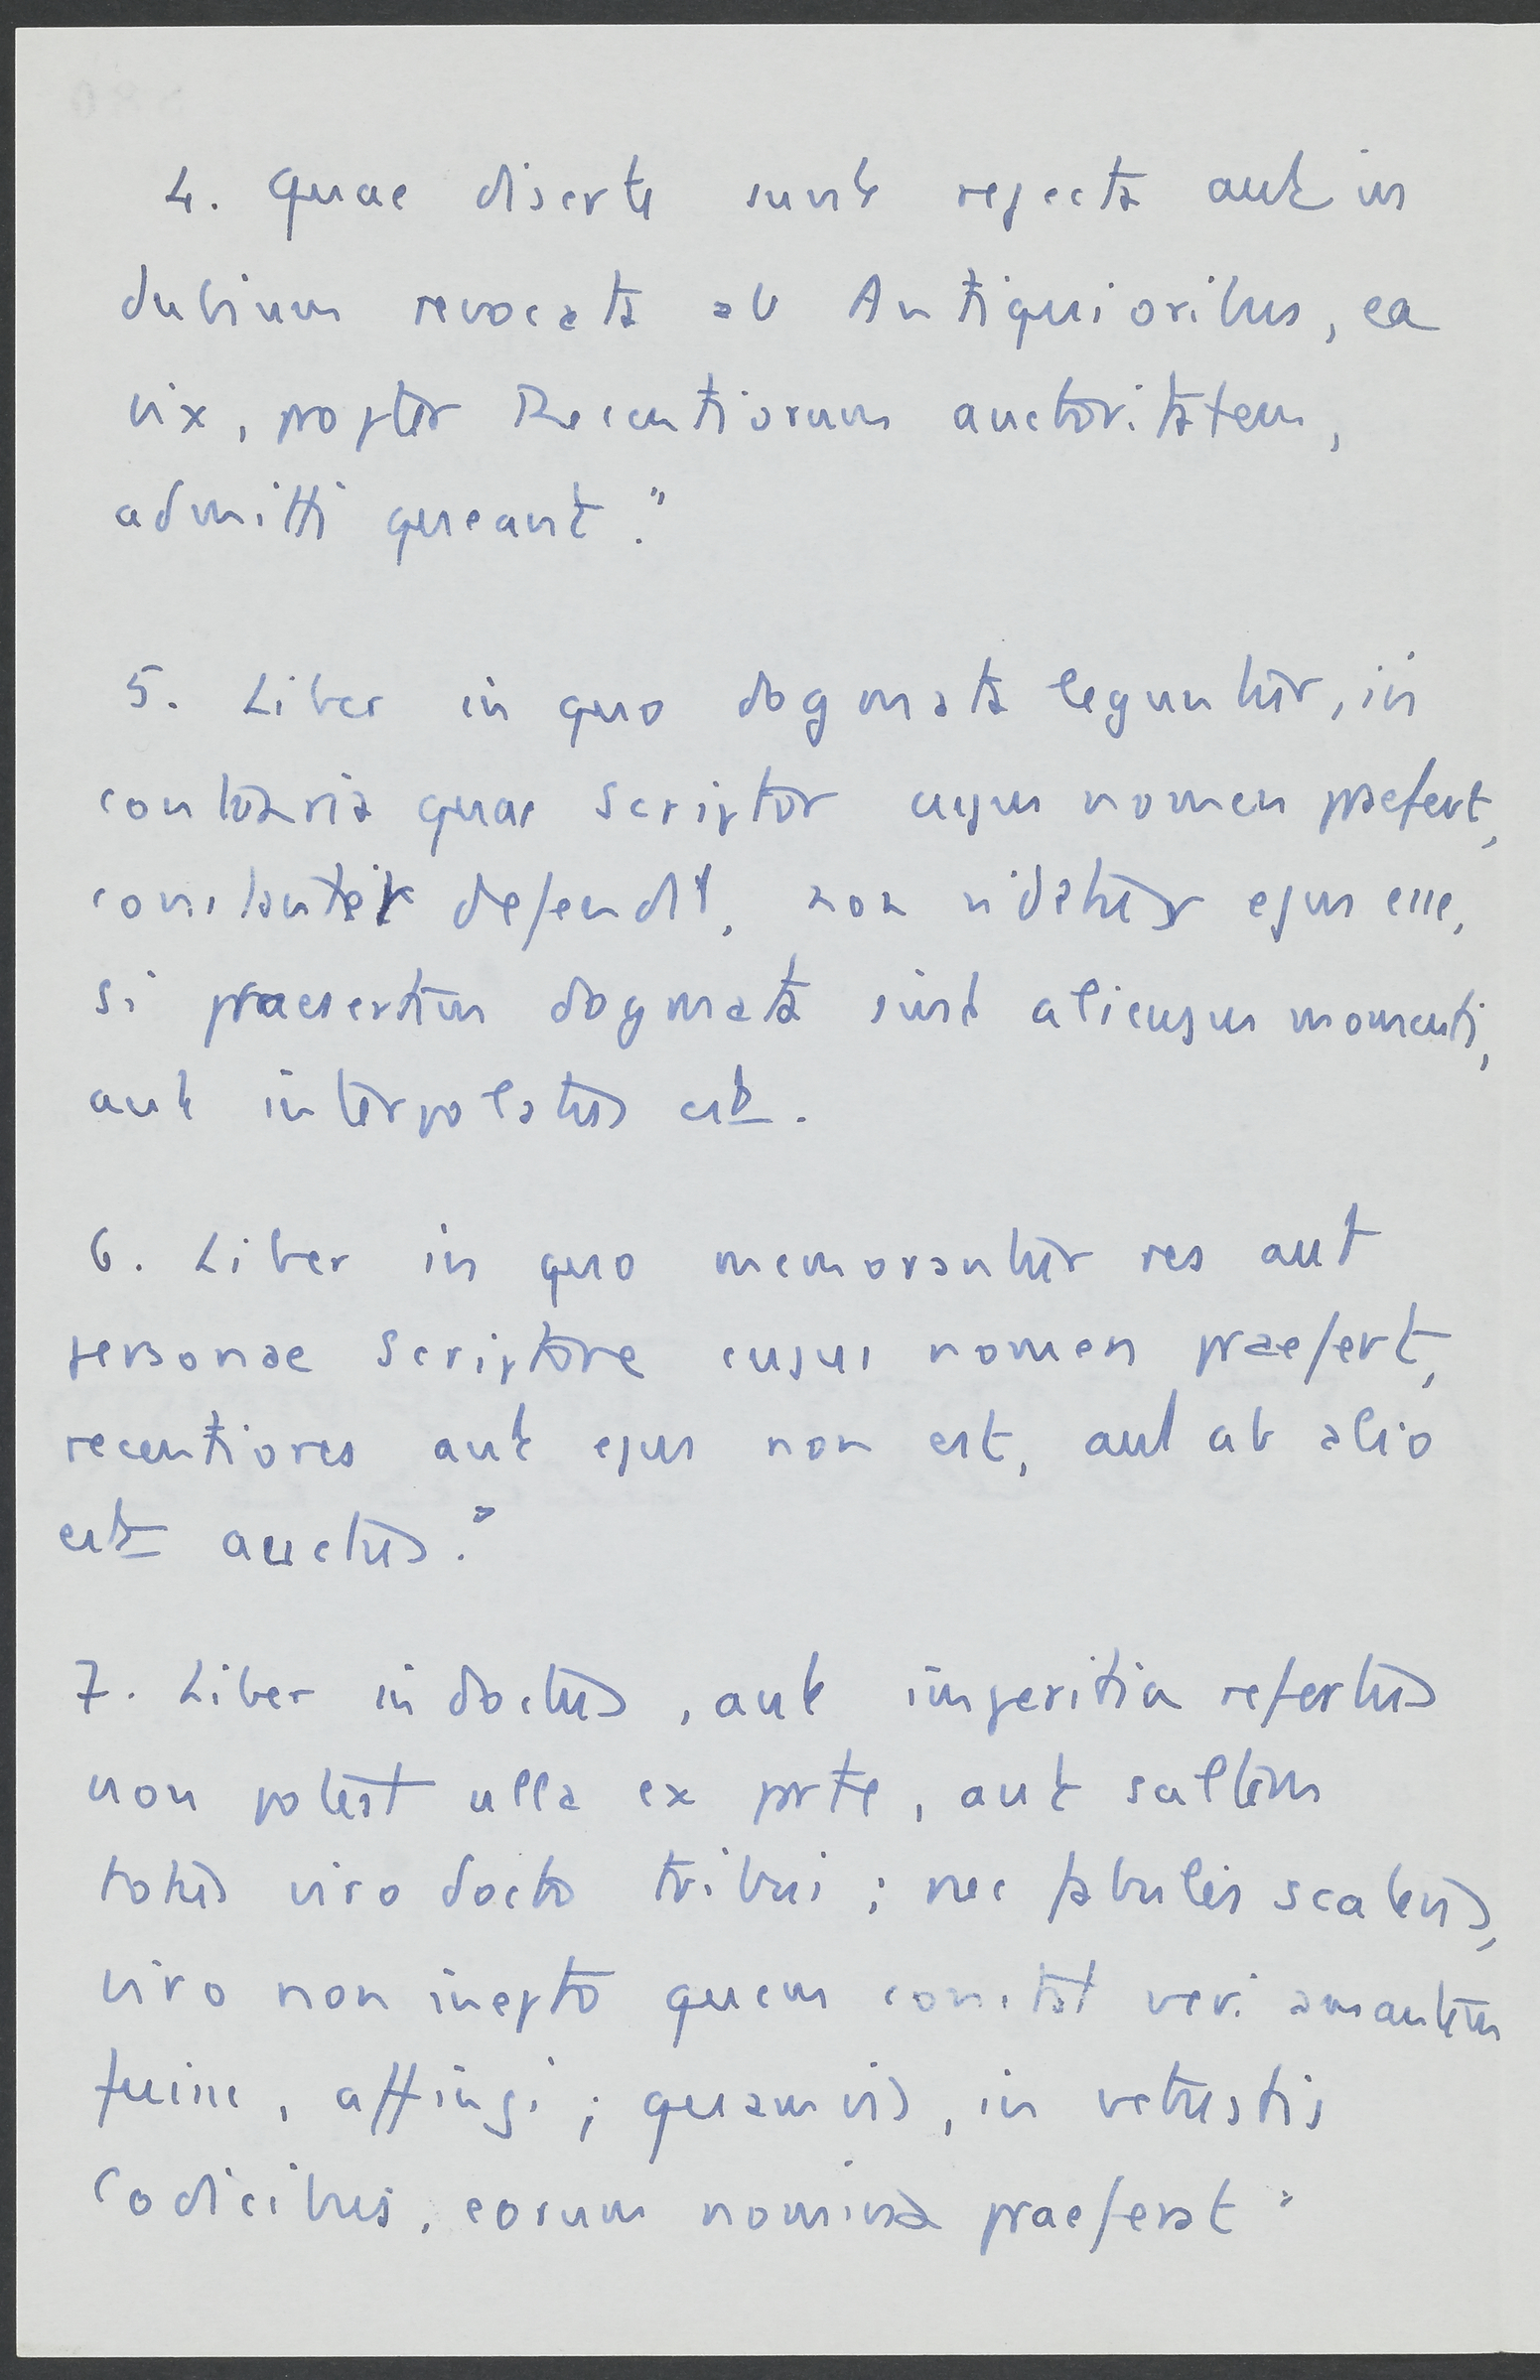 4. Quae diserte sunt rejecta aut in
dubium revocata ab Antiquioribus, ea
vix, propter Recentiorum auctoritatem,
admitti queant."
5. Liber in quo dogmata leguntur, iis
contraria quae Scriptor cujus nomen praefert,
constanter defendit, non videtur ejus esse,
si praesertim dogmata sint alicujus momenti,
aut interpolatus est.
6. Liber in quo memorantur res aut
personae Scriptore cujus nomen praefert,
recentiores aut ejus non est, aut ab alio
est auctus."
7. Liber indoctus, aut imperitia refertus
non potest ulla ex prte, aut saltem
totus viro docto tribui; nec fabulis scatens,
viro non inepto quem constat veri amantem
fuisse, affingi; quamvis, in vetustis
Codicibus, eorum nomina praeferat"